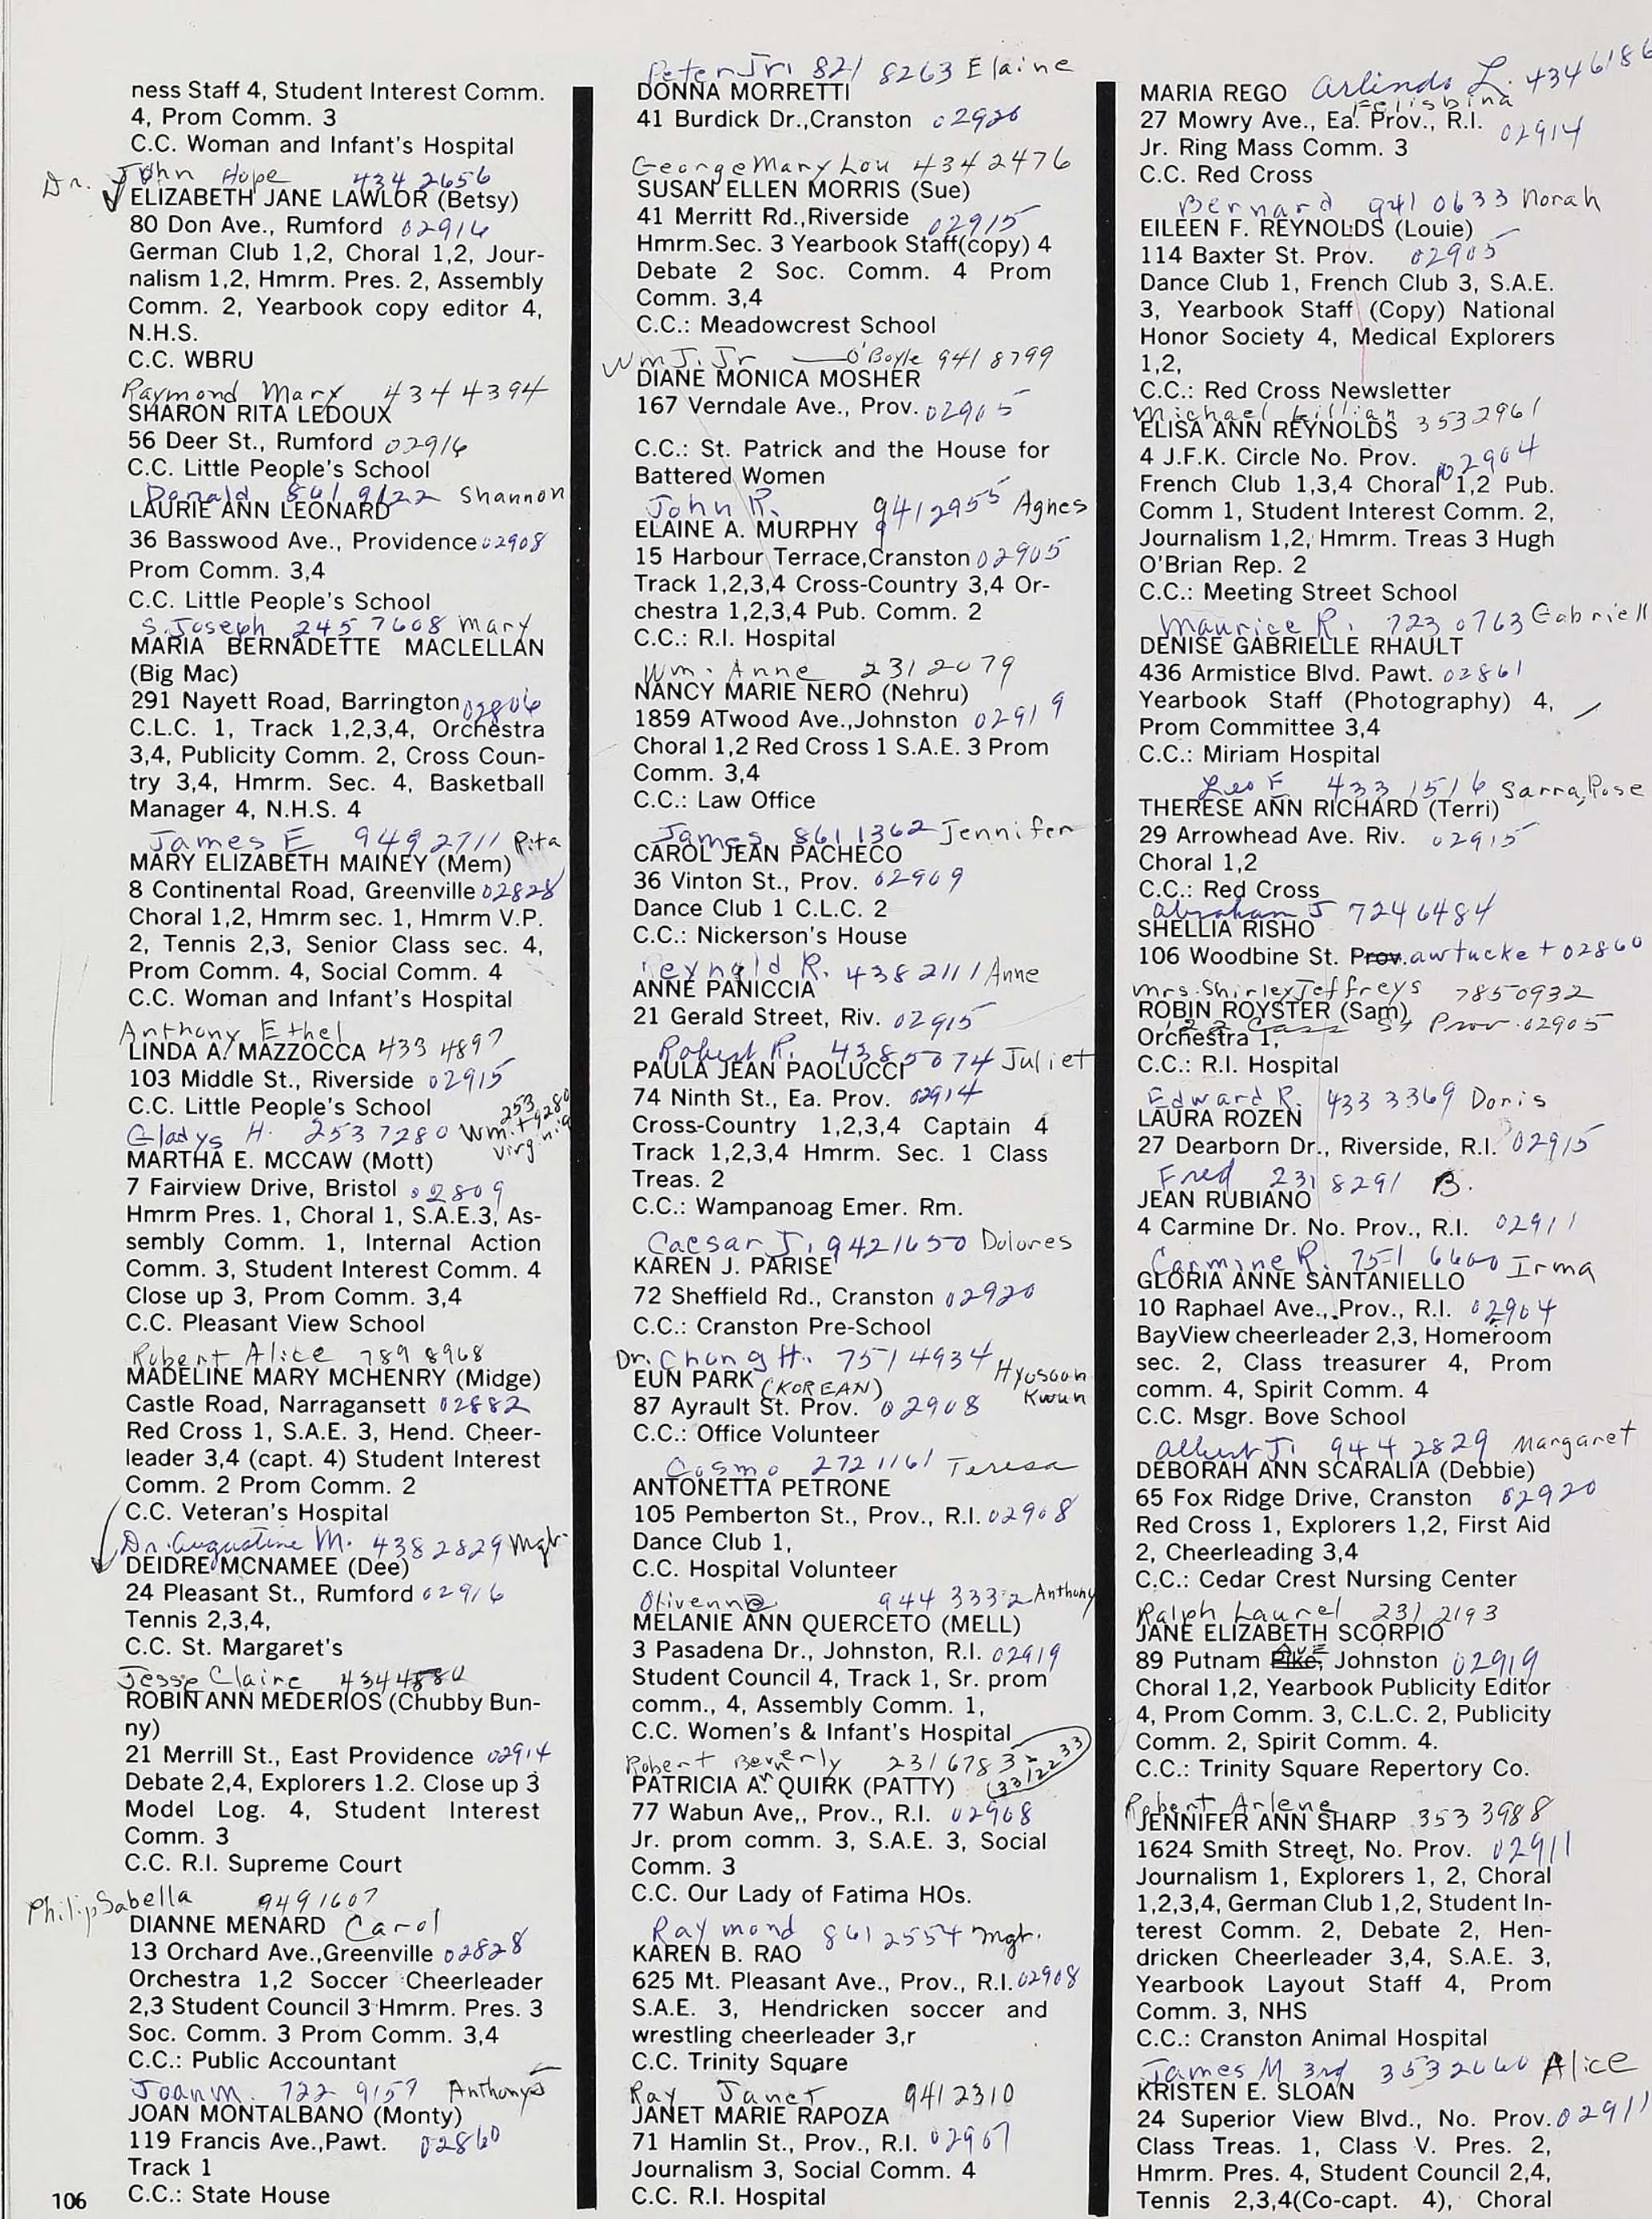 ness Staff 4, Student Interest Comm.
4, Prom Comm. 3
C.C. Woman and Infant's Hospital
Dr. John Hope 434 2656
ELIZABETH JANE LAWLOR (Betsy)
80 Don Ave., Rumford 02916
German Club 1,2, Choral 1,2, Jour-
nalism 1,2, Hmrm. Pres. 2, Assembly
Comm. 2, Yearbook copy editor 4,
N.H.S.
C.C. WBRU
Raymond Mary 434 4394
SHARON RITA LEDOUX
56 Deer St., Rumford 02916
C.C. Little People's School
Donald 861 9122 Shannon
LAURIE ANN LEONARD
36 Basswood Ave., Providence 02908
Prom Comm. 3,4
C.C. Little People's School
S. Joseph 245 7608 Mary
MARIA BERNADETTE MACLELLAN
(Big Mac)
291 Nayett Road, Barrington 02806
C.L.C. 1, Track 1,2,3,4, Orchestra
3,4, Publicity Comm. 2, Cross Coun-
try 3,4, Hmrm. Sec. 4, Basketball
Manager 4, N.H.S. 4
James E 949 2711 Rita
MARY ELIZABETH MAINEY (Mem)
8 Continental Road, Greenville 02828
Choral 1,2, Hmrm sec. 1, Hmrm V.P.
2, Tennis 2,3, Senior Class sec. 4,
Prom Comm. 4, Social Comm. 4
C.C. Woman and Infant's Hospital
Anthony Ethel
LINDA A. MAZZOCCA 433 4897
103 Middle St., Riverside 02915
C.C. Little People's School
Gladys H. 253 7280 Wm. + Virginia 253 9280
MARTHA E. MCCAW (Mott)
7 Fairview Drive, Bristol 02809
Hmrm Pres. 1, Choral 1, S.A.E.3, As-
sembly Comm. 1, Internal Action
Comm. 3, Student Interest Comm. 4
Close up 3, Prom Comm. 3,4
C.C. Pleasant View School
Robert Alice 789 8968
MADELINE MARY MCHENRY (Midge)
Castle Road, Narragansett 02882
Red Cross 1, S.A.E. 3, Hend. Cheer-
leader 3,4 (capt. 4) Student Interest
Comm. 2 Prom Comm. 2
C.C. Veteran's Hospital
Dr. Augustine M. 438 2829 Mgt.
DEIDRE MCNAMEE (Dee)
24 Pleasant St., Rumford 02916
Tennis 2,3,4,
C.C. St. Margaret's
Jesse Claire 434
ROBIN ANN MEDERIOS (Chubby Bun-
ny)
21 Merrill St., East Providence 02914
Debate 2,4, Explorers 1.2. Close up 3
Model Log. 4, Student Interest
Comm. 3
C.C. R.I. Supreme Court
Philip Sabella 949 1607
DIANNE MENARD Carol
13 Orchard Ave.,Greenville 02828
Orchestra 1,2 Soccer Cheerleader
2,3 Student Council 3 Hmrm. Pres. 3
Soc. Comm. 3 Prom Comm. 3,4
C.C.: Public Accountant
Joan M. 722 9157 Anthony
JOAN MONTALBANO (Monty)
119 Francis Ave.,Pawt. 02860
Track 1
C.C.: State House
106
Peter Jr. 821 8263 Elaine
DONNA MORRETTI
41 Burdick Dr.,Cranston 02920
George Mary Lou 434 2476
SUSAN ELLEN MORRIS (Sue)
41 Merritt Rd.,Riverside 02915
Hmrm.Sec. 3 Yearbook Staff(copy) 4
Debate 2 Soc. Comm. 4 Prom
Comm. 3,4
C.C.: Meadowcrest School
Wm J. Jr — O'Boyle 941 8799
DIANE MONICA MOSHER
167 Verndale Ave., Prov. 02905
C.C.: St. Patrick and the House for
Battered Women
John R. 941 2955 Agnes
ELAINE A. MURPHY
15 Harbour Terrace,Cranston 02905
Track 1,2,3,4 Cross-Country 3,4 Or-
chestra 1,2,3,4 Pub. Comm. 2
C.C.: R.I. Hospital
Wm. Anne 231 2079
NANCY MARIE NERO (Nehru)
1859 ATwood Ave.,Johnston 02919
Choral 1,2 Red Cross 1 S.A.E. 3 Prom
Comm. 3,4
C.C.: Law Office
James 861 1362 Jennifer
CAROL JEAN PACHECO
36 Vinton St., Prov. 02909
Dance Club 1 C.L.C. 2
C.C.: Nickerson's House
Reynold R. 438 2111 Anne
ANNE PANICCIA
21 Gerald Street, Riv. 02915
Robert R. 438 5074 Juliet
PAULA JEAN PAOLUCCI
74 Ninth St., Ea. Prov. 02914
Cross-Country 1,2,3,4 Captain 4
Track 1,2,3,4 Hmrm. Sec. 1 Class
Treas. 2
C.C.: Wampanoag Emer. Rm.
Caesar J. 942 1650 Dolores
KAREN J. PARISE
72 Sheffield Rd., Cranston 02920
C.C.: Cranston Pre-School
Dr. Chong H. 751 4934 Hyosoon Kwun
EUN PARK (KOREAN)
87 Ayrault St. Prov. 02908
C.C.: Office Volunteer
Cosmo 272 1161 Teresa
ANTONETTA PETRONE
105 Pemberton St., Prov., R.I. 02908
Dance Club 1,
C.C. Hospital Volunteer
Olivenne 944 3332 Anthony
MELANIE ANN QUERCETO (MELL)
3 Pasadena Dr., Johnston, R.I. 02919
Student Council 4, Track 1, Sr. prom
comm., 4, Assembly Comm. 1,
C.C. Women's & Infant's Hospital
Robert Beverly 231 6783 (331 2233)
PATRICIA A. QUIRK (PATTY)
77 Wabun Ave,, Prov., R.I. 02908
Jr. prom comm. 3, S.A.E. 3, Social
Comm. 3
C.C. Our Lady of Fatima HOs.
Raymond 861 2554 Mgt.
KAREN B. RAO
625 Mt. Pleasant Ave., Prov., R.I. 02908
S.A.E. 3, Hendricken soccer and
wrestling cheerleader 3,r
C.C. Trinity Square
Ray Janet 941 2310
JANET MARIE RAPOZA
71 Hamlin St., Prov., R.I. 02907
Journalism 3, Social Comm. 4
C.C. R.I. Hospital
MARIA REGO Arlindo L. 434 6186
Felisbina
27 Mowry Ave., Ea. Prov., R.I. 02914
Jr. Ring Mass Comm. 3
C.C. Red Cross
Bernard 941 0633 Norah
EILEEN F. REYNOLDS (Louie)
114 Baxter St. Prov. 02905
Dance Club 1, French Club 3, S.A.E.
3, Yearbook Staff (Copy) National
Honor Society 4, Medical Explorers
1,2,
C.C.: Red Cross Newsletter
Michael Lillian 353 2961
ELISA ANN REYNOLDS
4 J.F.K. Circle No. Prov. 02904
French Club 1,3,4 Choral 1,2 Pub.
Comm 1, Student Interest Comm. 2,
Journalism 1,2, Hmrm. Treas 3 Hugh
O'Brian Rep. 2
C.C.: Meeting Street School
Maurice R. 723 0763 Gabriell
DENISE GABRIELLE RHAULT
436 Armistice Blvd. Pawt. 02861
Yearbook Staff (Photography) 4,
Prom Committee 3,4
C.C.: Miriam Hospital
Leo F 433 1516 Sarra, Rose
THERESE ANN RICHARD (Terri)
29 Arrowhead Ave. Riv. 02915
Choral 1,2
C.C.: Red Cross
Abraham J 724 6484
SHELLIA RISHO
106 Woodbine St. Prov. awtucket 02860
Mrs. Shirley Jeffreys 785 0932
ROBIN ROYSTER (Sam)
Orchestra 1, St Prov. 02905
C.C.: R.I. Hospital
Edward R. 433 3369 Doris
LAURA ROZEN
27 Dearborn Dr., Riverside, R.I. 02915
Fred 231 8291 B.
JEAN RUBIANO
4 Carmine Dr. No. Prov., R.I. 02911
Carmine R. 751 6600 Irma
GLORIA ANNE SANTANIELLO
10 Raphael Ave., Prov., R.I. 02904
BayView cheerleader 2,3, Homeroom
sec. 2, Class treasurer 4, Prom
comm. 4, Spirit Comm. 4
C.C. Msgr. Bove School
Albert J. 944 2829 Margaret
DEBORAH ANN SCARALIA (Debbie)
65 Fox Ridge Drive, Cranston 02920
Red Cross 1, Explorers 1,2, First Aid
2, Cheerleading 3,4
C.C.: Cedar Crest Nursing Center
Ralph Laurel 231 2193
JANE ELIZABETH SCORPIO
89 Putnam Pike, AVE Johnston 02919
Choral 1,2, Yearbook Publicity Editor
4, Prom Comm. 3, C.L.C. 2, Publicity
Comm. 2, Spirit Comm. 4.
C.C.: Trinity Square Repertory Co.
Robert Arlene
JENNIFER ANN SHARP 353 3988
1624 Smith Street, No. Prov. 02911
Journalism 1, Explorers 1, 2, Choral
1,2,3,4, German Club 1,2, Student In-
terest Comm. 2, Debate 2, Hen-
dricken Cheerleader 3,4, S.A.E. 3,
Yearbook Layout Staff 4, Prom
Comm. 3, NHS
C.C.: Cranston Animal Hospital
James M 3rd 353 2660 Alice
KRISTEN E. SLOAN
24 Superior View Blvd., No. Prov. 02911
Class Treas. 1, Class V. Pres. 2,
Hmrm. Pres. 4, Student Council 2,4,
Tennis 2,3,4(Co-capt. 4), Choral